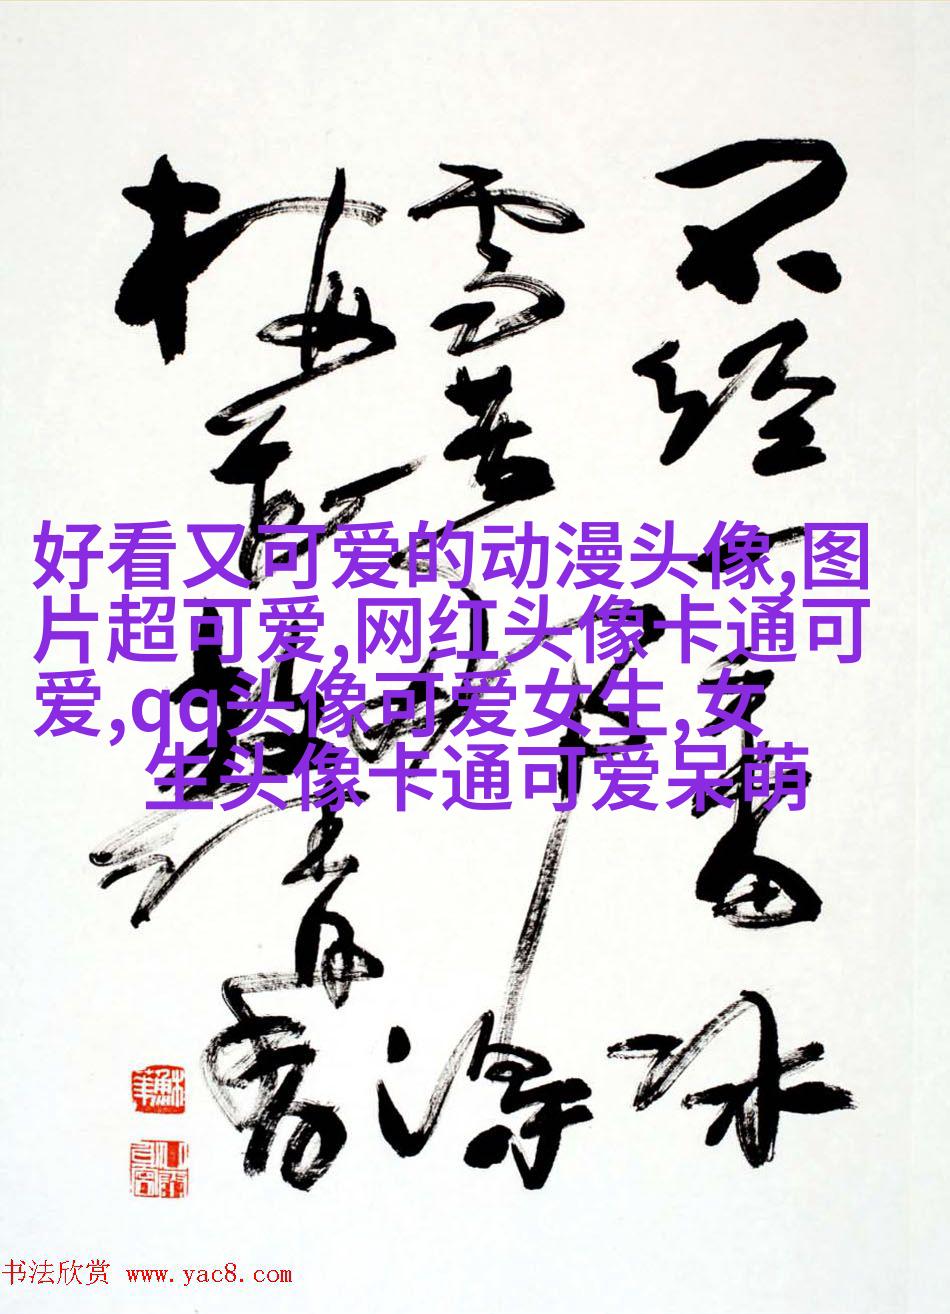 不经一番冰
雪苦得
梅清香
好看又可爱的动漫头像,图
片超可爱,网红头像卡通可
爱,qq头像可爱女生,女
生头像卡通可爱呆萌
书法欣赏 www.yac8.com